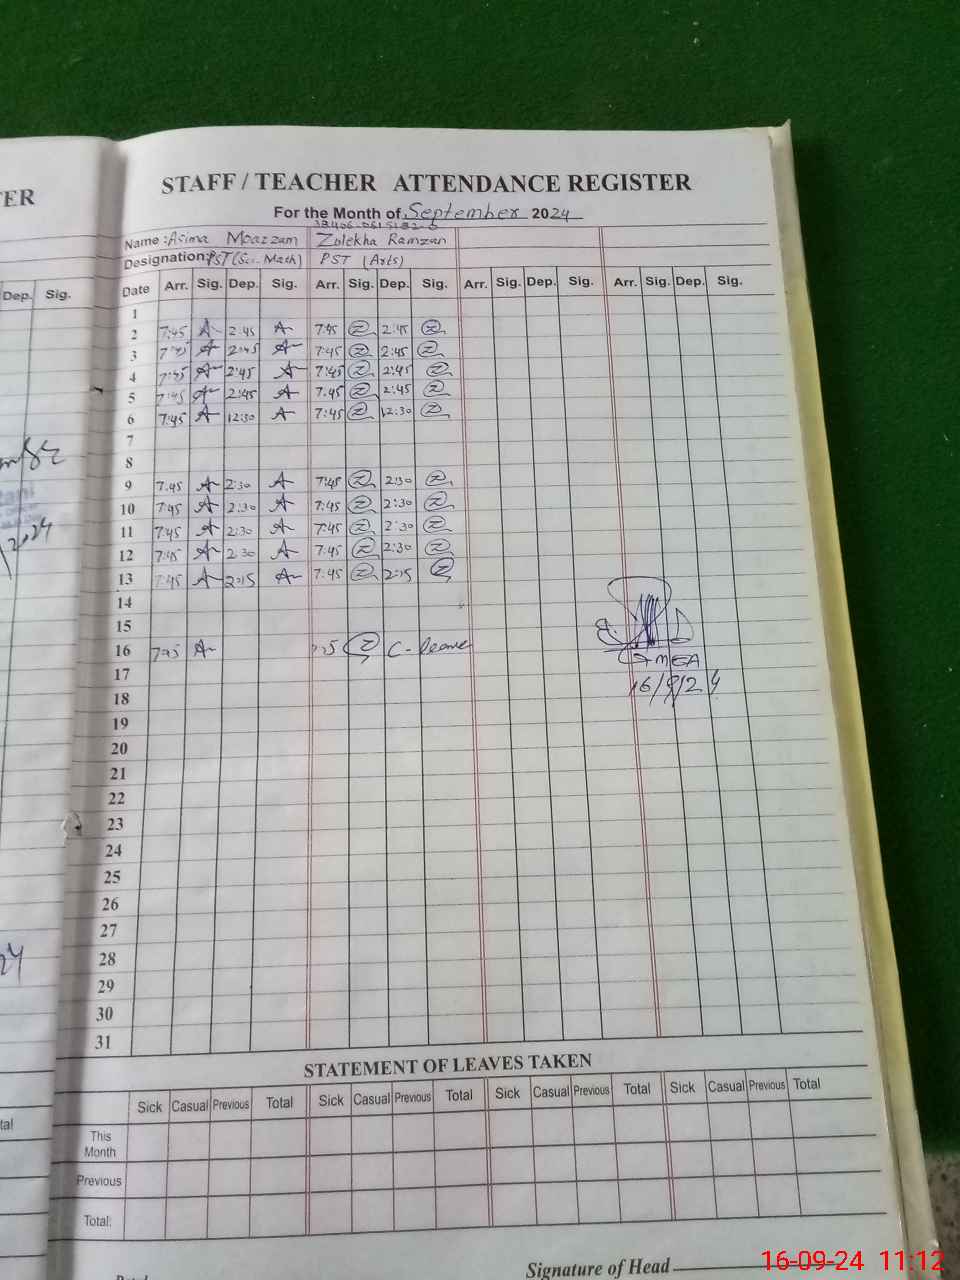 ER
STAFF / TEACHER ATTENDANCE REGISTER
For the Month of September 2024
Name: Asima Moazzam Zulekha Ramzan
Designation: PST (Sci-Math) PST (Arts)
Dep. Sig.
Date Arr. Sig. Dep. Sig. Arr. Sig. Dep. Sig. Arr. Sig. Dep. Sig. Arr. Sig. Dep. Sig.
1
2 7:45 A 2:45 A 7:45 Z 2:45 Z
3 7:45 A 2:45 A 7:45 Z 2:45 Z
4 7:45 A 2:45 A 7:45 Z 2:45 Z
5 7:45 A 2:45 A 7:45 Z 2:45 Z
6 7:45 A 12:30 A 7:45 Z 12:30 Z
7
8
9 7:45 A 2:30 A 7:45 Z 2:30 Z
10 7:45 A 2:30 A 7:45 Z 2:30 Z
11 7:45 A 2:30 A 7:45 Z 2:30 Z
12 7:45 A 2:30 A 7:45 Z 2:30 Z
13 7:45 A 2:15 A 7:45 Z 2:15 Z
14
15
16 7:45 A Z C-leave
MEA
17
16/9/24
18
19
20
21
22
23
24
25
26
27
28
29
30
31
STATEMENT OF LEAVES TAKEN
Sick Casual Previous Total Sick Casual Previous Total Sick Casual Previous Total Sick Casual Previous Total
This Month
Previous
Total:
Signature of Head
16-09-24 11:12